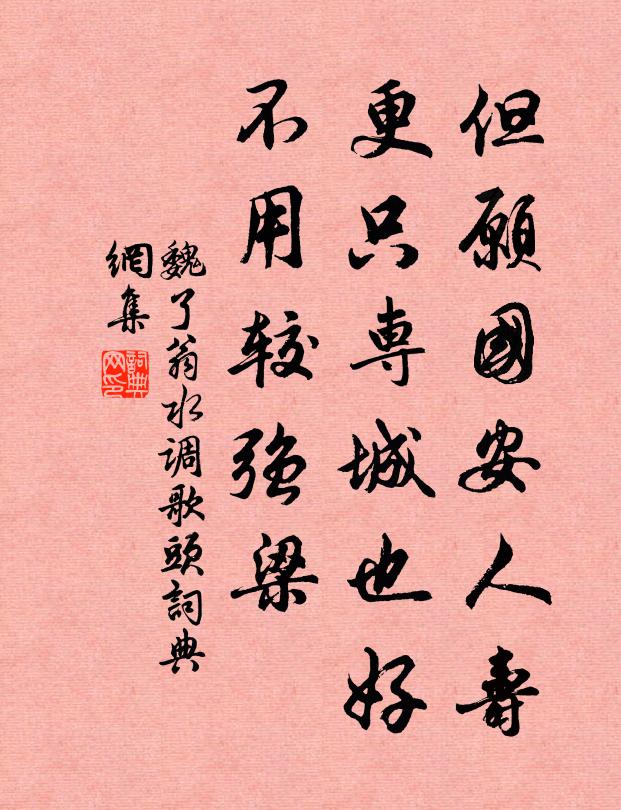 但願國安人壽
更只専城也好
不用较強梁
魏了翁水调歌頭詞典
網集
詞典
网印